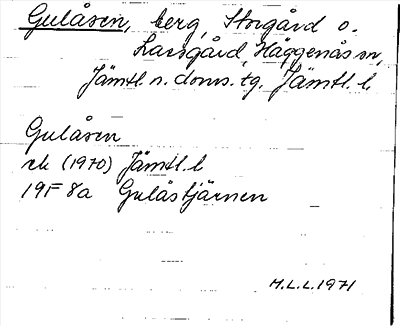 Gulåsen, berg, Storgård o.
Larsgård, Häggenås sn,
Jämtl. n. doms. tg. Jämtl. l.
Gulåsen
ek (1970) Jämtl. l
19F 8a Gulåstjärnen
M.L.L. 1971